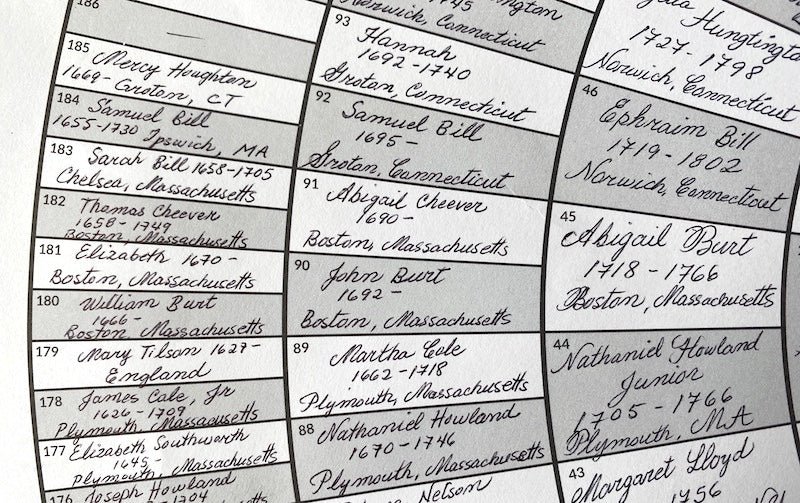 186
—
185 Mercy Houghton
1669- Groton, CT
184 Samuel Bill
1655-1730 Ipswich, MA
183 Sarah Bill 1658-1705
Chelsea, Massachusetts
182 Thomas Cheever
1658-1749
Boston, Massachusetts
181 Elizabeth 1670-
Boston, Massachusetts
180 William Burt
1666-
Boston, Massachusetts
179 Mary Tilson 1627-
England
178 James Cole, Jr
1626-1709
Plymouth, Massachusetts
177 Elizabeth Southworth
1645-
Plymouth, Massachusetts
176 Joseph Howland
Norwich, Connecticut
93
Hannah
1692-1740
Groton, Connecticut
92
Samuel Bill
1695-
Groton, Connecticut
91
Abigail Cheever
1690-
Boston, Massachusetts
90
John Burt
1692-
Boston, Massachusetts
89
Martha Cole
1662-1718
Plymouth, Massachusetts
88
Nathaniel Howland
1670-1746
Plymouth, Massachusetts
Nelson
Huntington
1727-1798
Norwich, Connecticut
46
Ephraim Bill
1719-1802
Norwich, Connecticut
45
Abigail Burt
1718-1766
Boston, Massachusetts
44
Nathaniel Howland
Junior
1705-1766
Plymouth, MA
43
Margaret Lloyd
1756